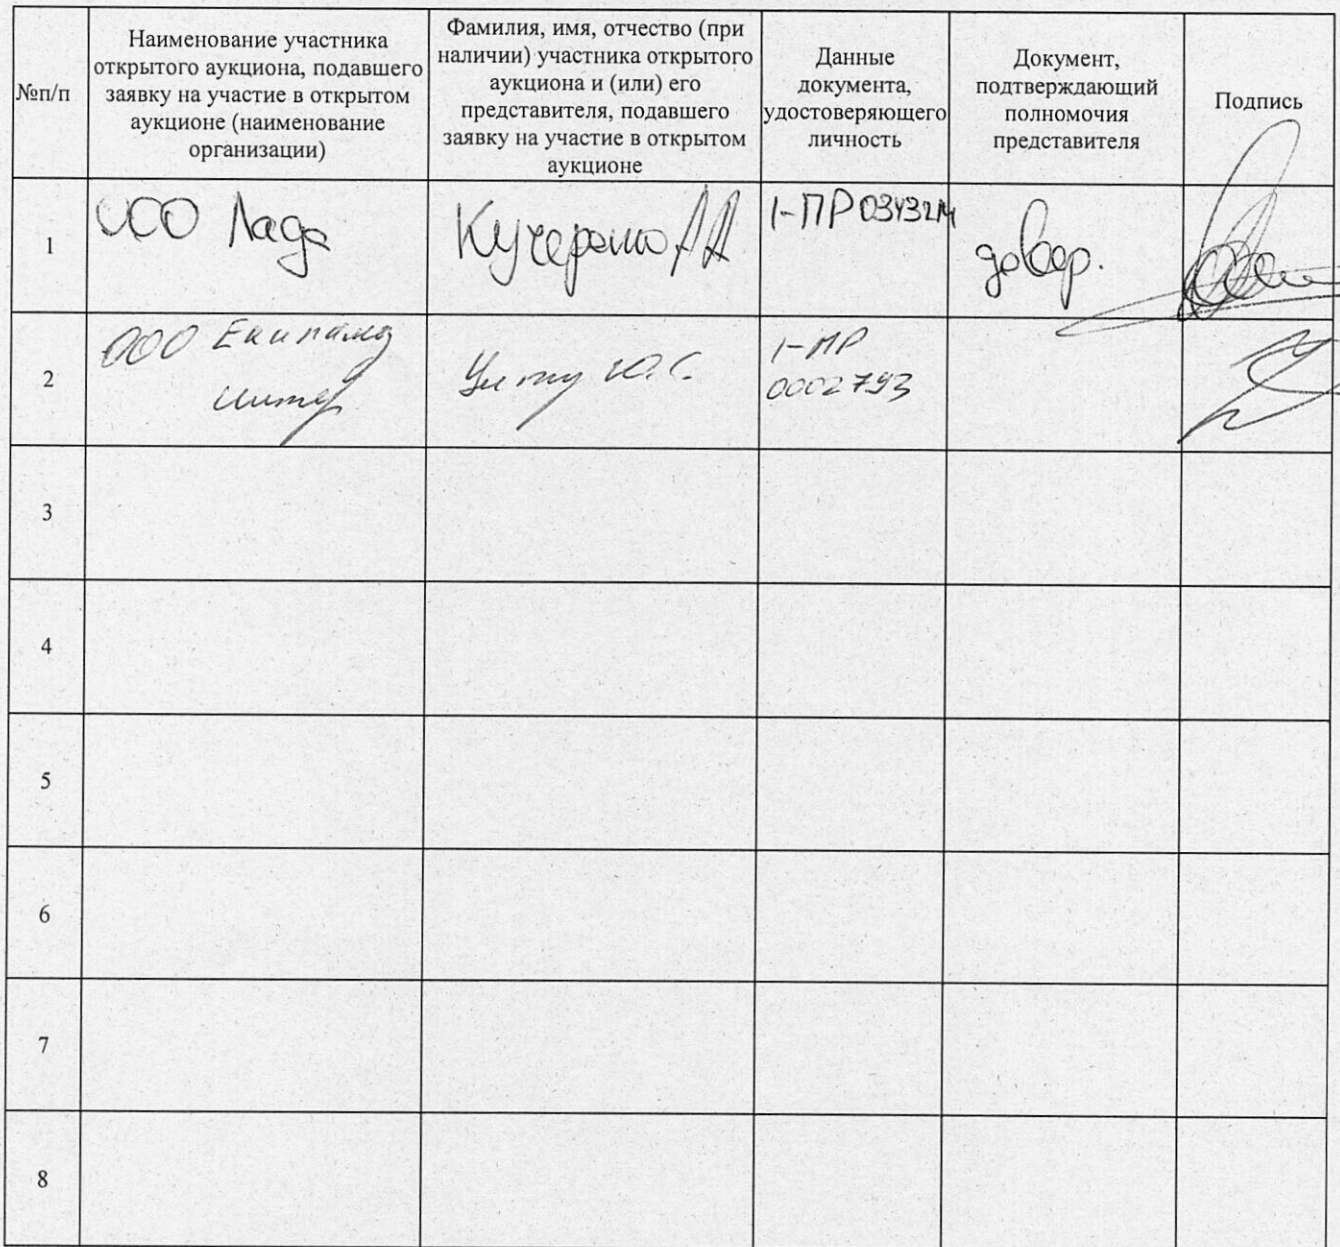 №п/п
Наименование участника
открытого аукциона, подавшего
заявку на участие в открытом
аукционе (наименование
организации)
Фамилия, имя, отчество (при
наличии) участника открытого
аукциона и (или) его
представителя, подавшего
заявку на участие в открытом
аукционе
Данные
документа,
удостоверяющего
личность
Документ,
подтверждающий
полномочия
представителя
Подпись
1
ООО Лада
АА
1-ПР
довер.
2
ООО
Ю.С.
1-ПР
0002793
3
4
5
6
7
8